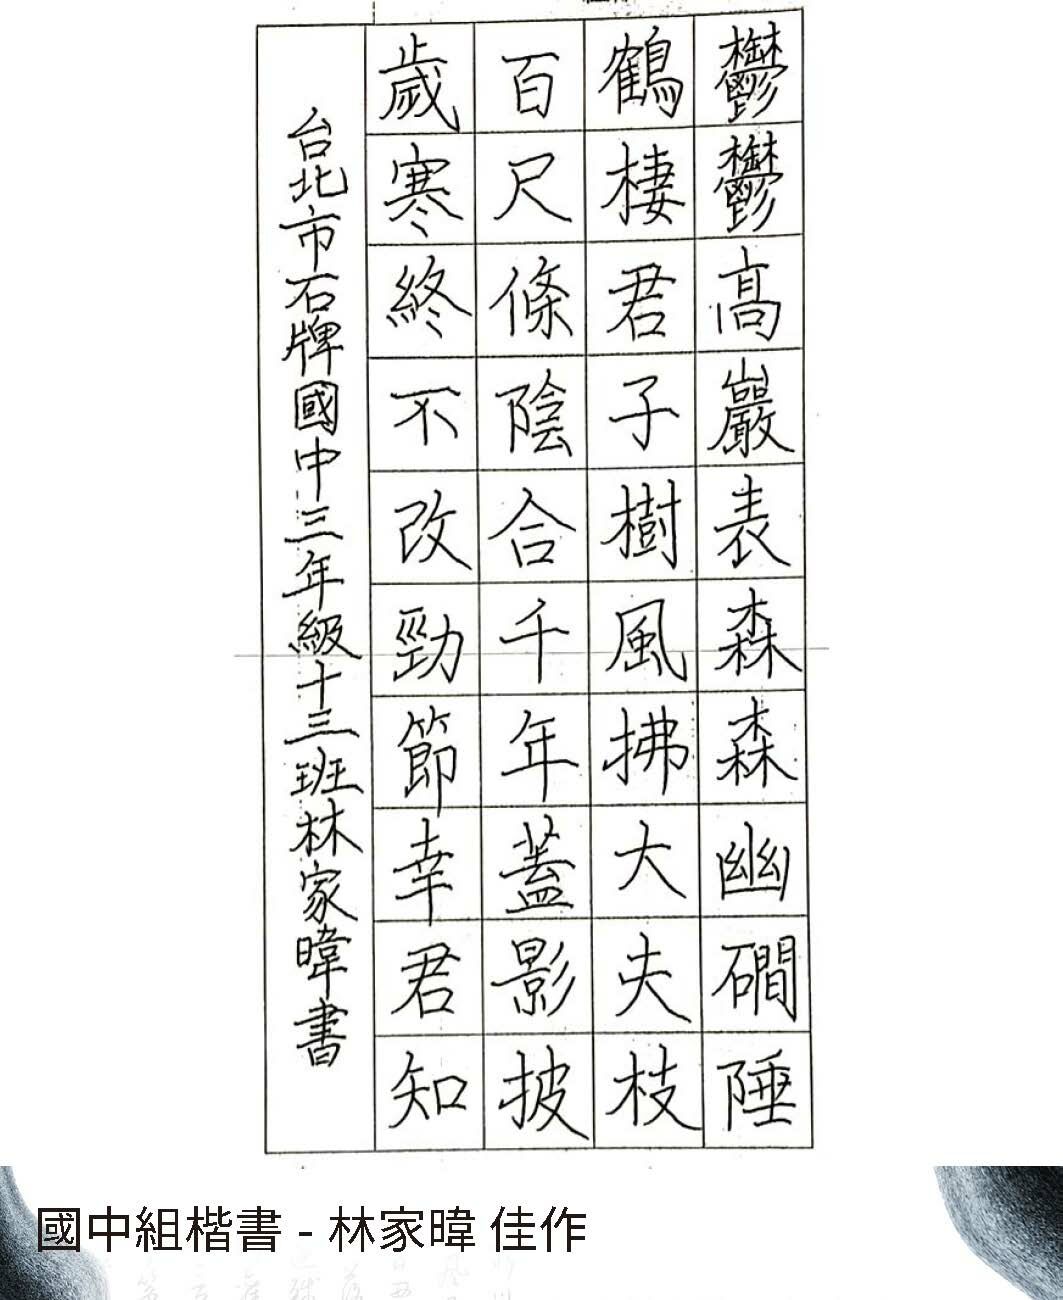 鬱鬱高巖表森森幽磵陲
鶴棲君子樹風拂大夫枝
百尺條陰合千年蓋影披
歲寒終不改勁節幸君知
台北市石牌國中三年級十三班林家暐書
國中組楷書 - 林家暐 佳作